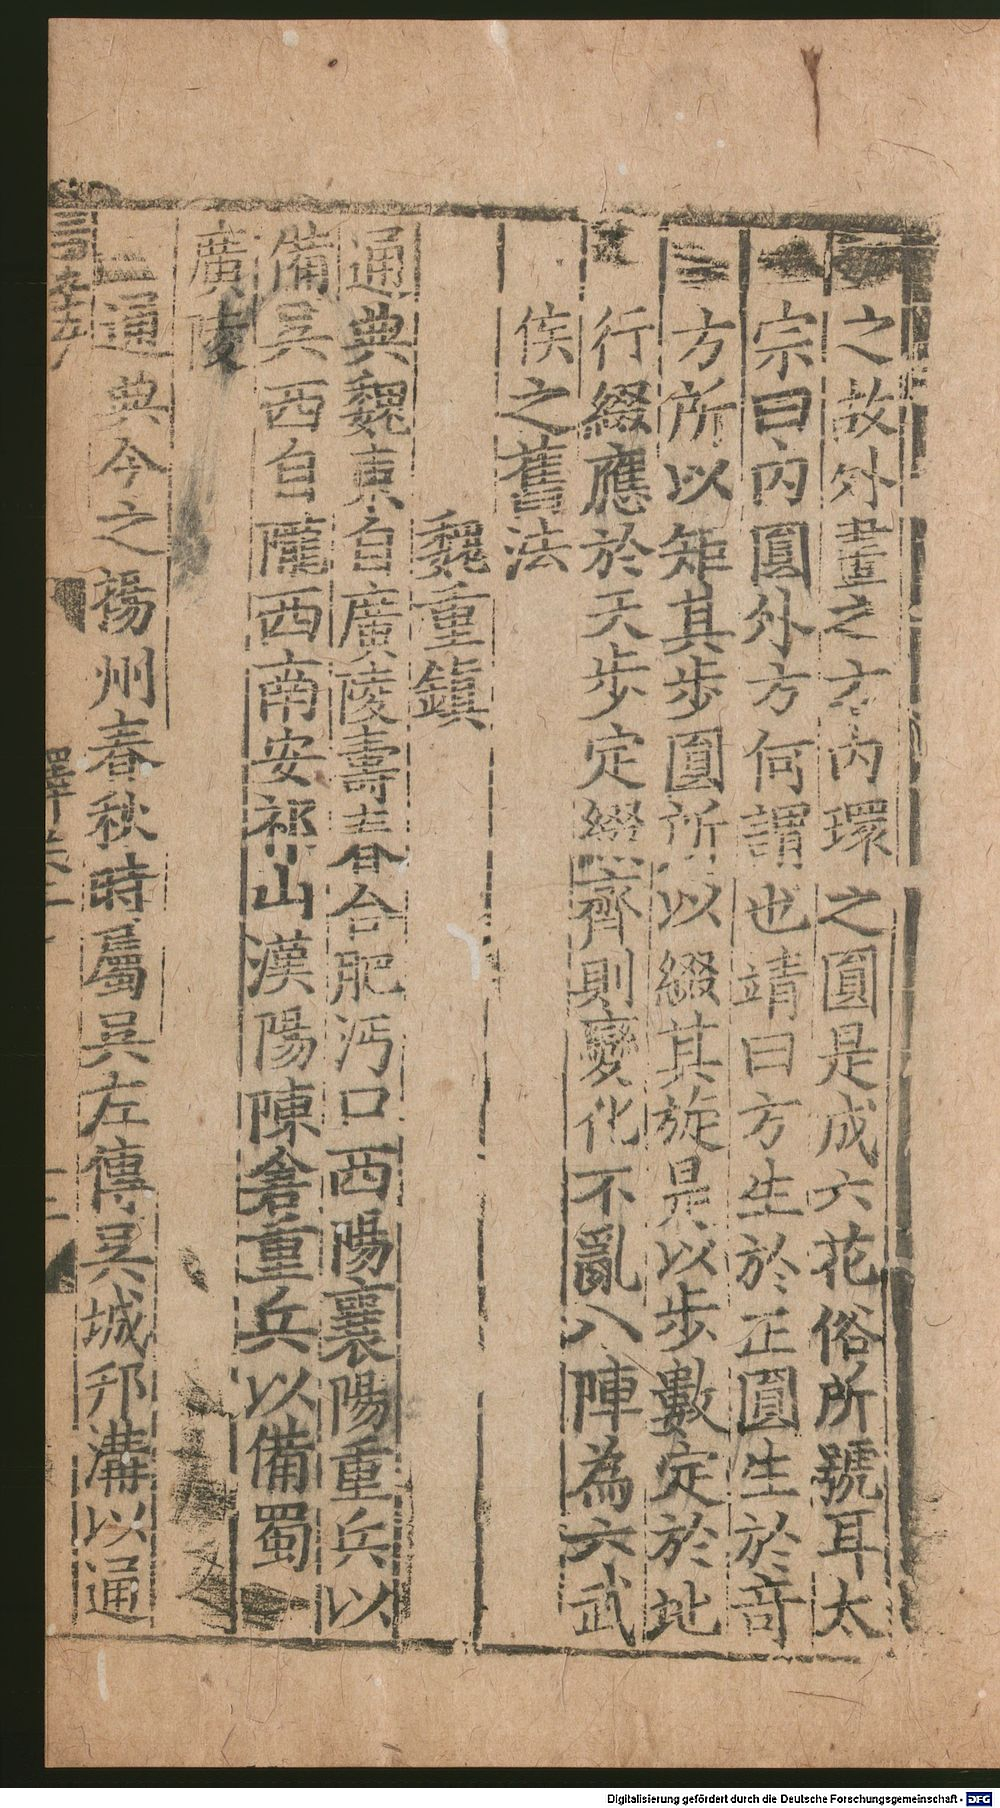 之故外畫之方內環之圓是成六花俗所號耳太
宗曰內圓外方何謂也靖曰方生於正圓生於竒
方所以矩其步圓所以綴其旋是以步數定於地
行綴應於天步定綴齊則變化不亂八陣為六武
侯之舊法
魏重鎮
通典魏東自廣陵壽春合肥沔口西陽襄陽重兵以
備吳西自隴西南安祁山漢陽陳倉重兵以備蜀
廣陵
通典今之楊州春秋時屬吳左傳吳城邗溝以通
Digitalisierung gefördert durch die Deutsche Forschungsgemeinschaft - DFG